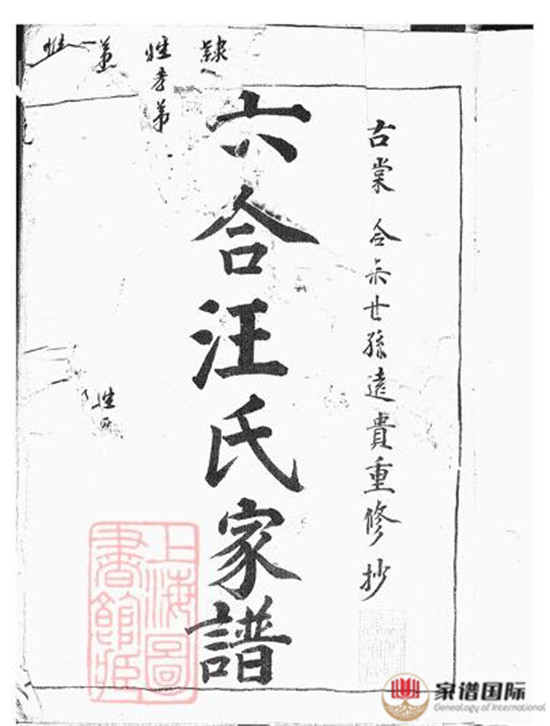 隸
姓孝弟
古棠 合宗廿孫遠貴重修抄
六合汪氏家譜
姓
上海圖
書館藏
家谱国际
Genealogy of International